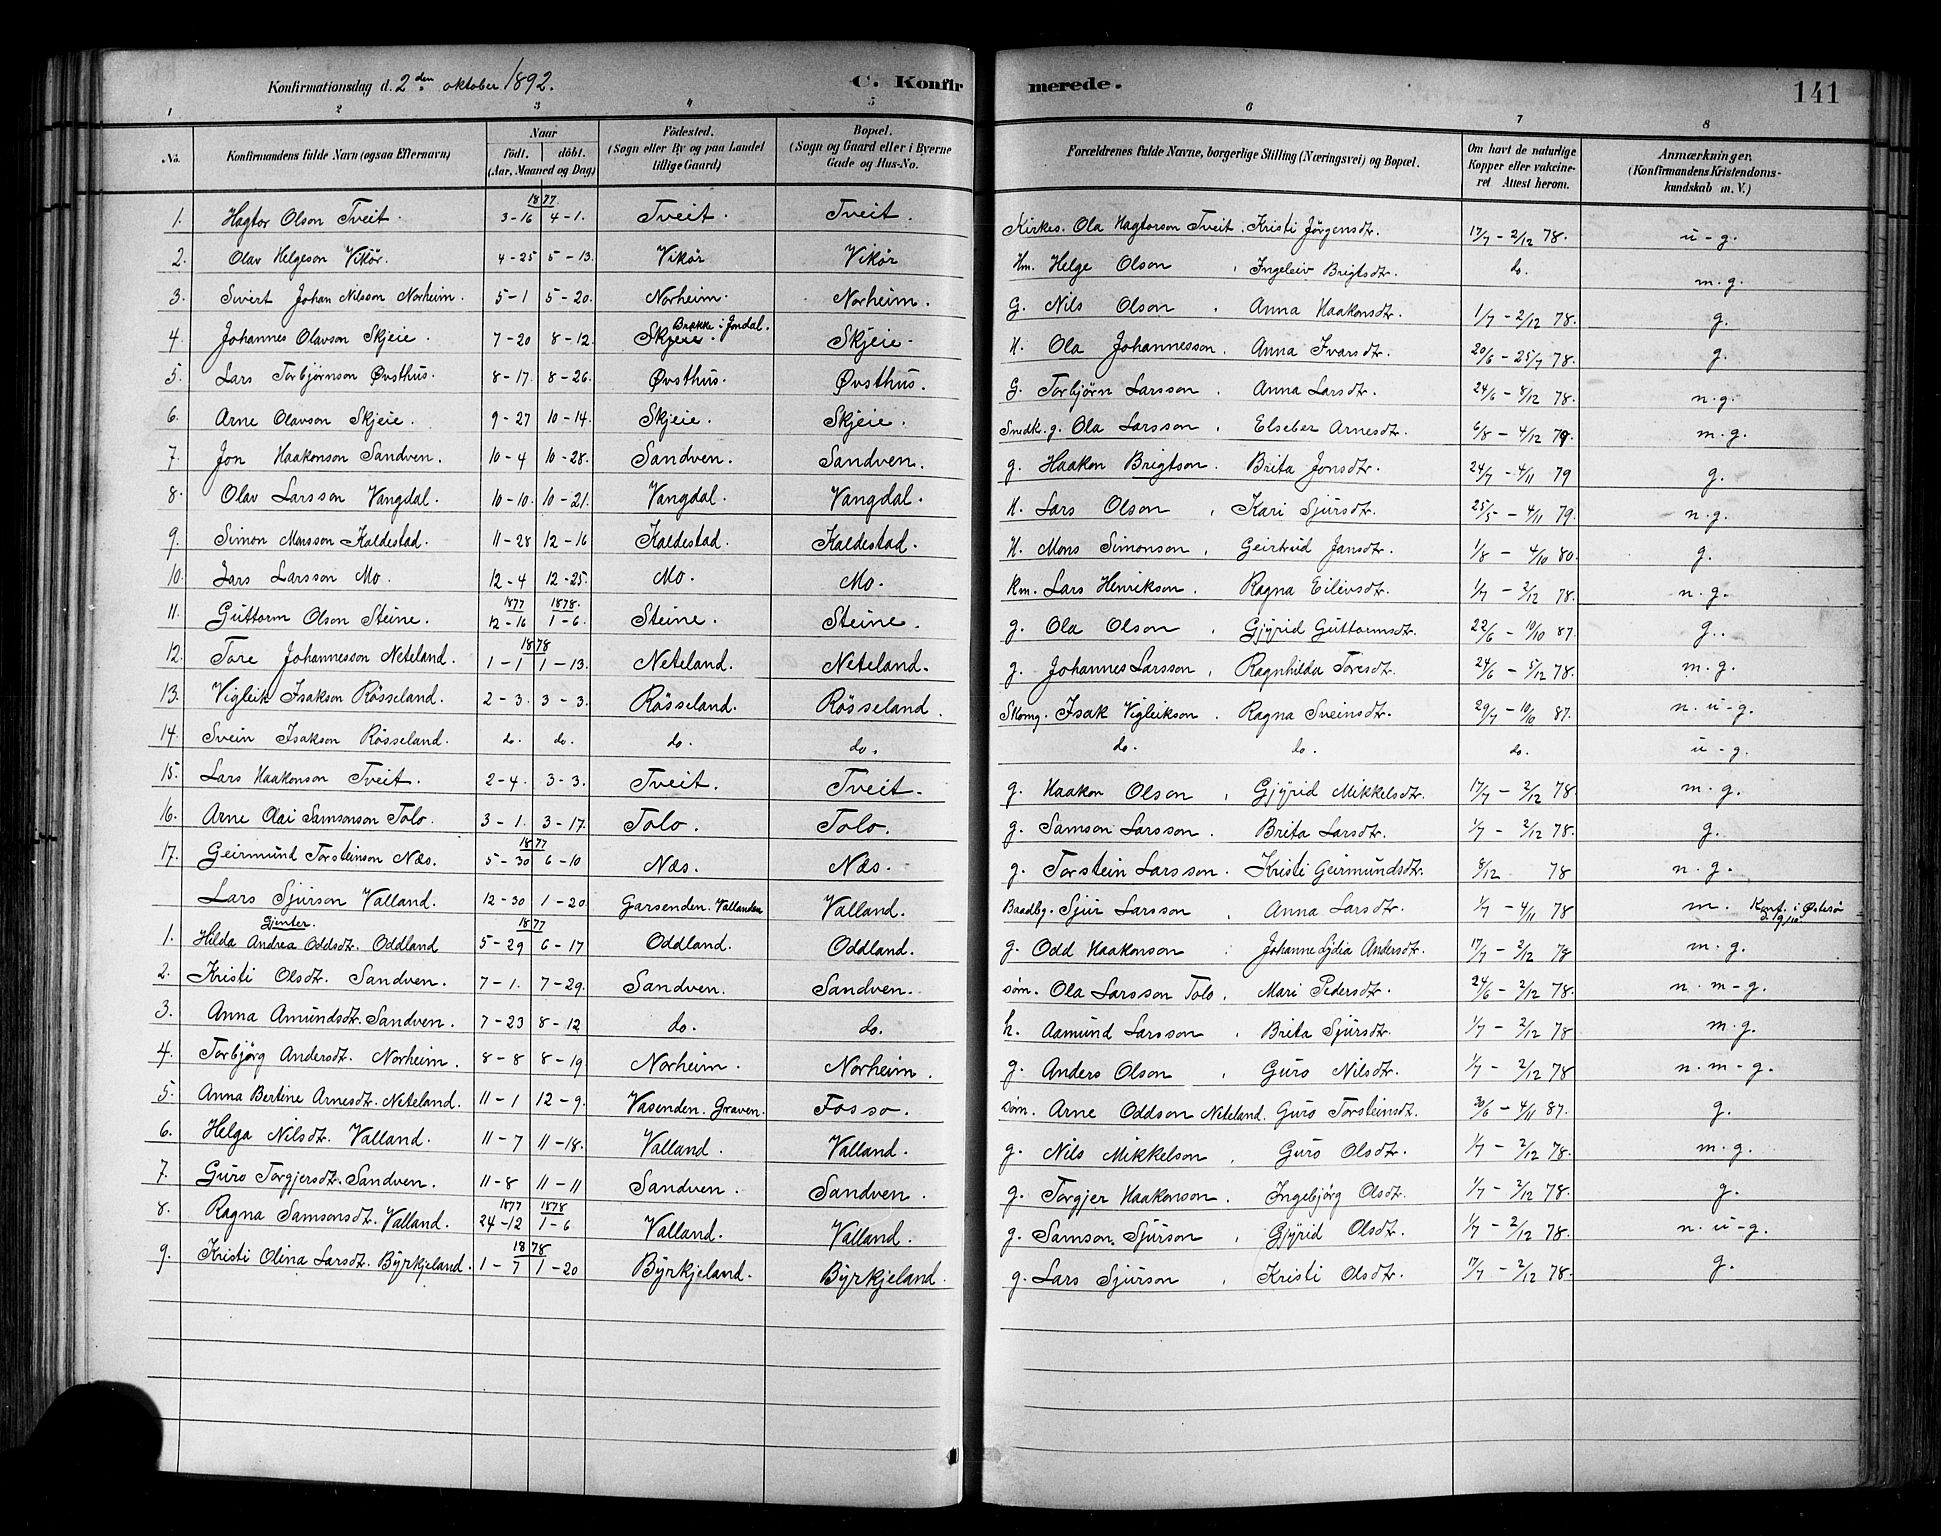 Konfirmationsdag d. 2den oktober 1892. C. Konfirmerede. 141
1 2 3 4 5 6 7 8
No. Konfirmandens fulde Navn (ogsaa Efternavn) Naar födt. döbt. (Aar, Maaned og Dag) Födested. (Sogn eller By og paa Landet tillige Gaard) Bopæl. (Sogn og Gaard eller i Byerne Gade og Hus-No. Forældrenes fulde Navne, borgerlige Stilling (Næringsvei) og Bopæl. Om havt de naturlige Kopper eller vakcineret Attest herom. Anmærkninger. (Konfirmandens Kristendomskundskab m. V.)
1877
1. Hagtor Olson Tveit. 3-16 4-1. Tveit. Tveit. Kirkes. Ola Hagtorson Tveit. Kristi Jörgensdtr. 17/7 - 2/12 78. u-g.
2. Olav Helgeson Vikör. 4-25 5-13. Vikör Vikör Hm. Helge Olson, Ingeleiv Brigtsdtr. do. m.g.
3. Sivert Johan Nilsson Norheim. 5-1 5-20. Norheim. Norheim. G. Nils Olson, Anna Haakonsdtr. 1/7 - 2/12 78. g.
4. Johannes Olavson Skjeie. 7-20 8-12. Skjeie. Brække i Jondal. Skjeie. H. Ola Johannesson. Anna Ivarsdtr. 20/6 - 25/7 78. g.
5. Lars Torbjörnson Øvsthus. 8-17. 8-26. Øvsthus. Øvsthus. G. Torbjörn Larsson, Anna Larsdtr. 24/6 - 8/12 78. n.g.
6. Arne Olavson Skjeie. 9-27 10-14. Skjeie. Skjeie. Snedk. g. Ola Larsson, Elseber Arnesdtr. 6/8 - 4/12 79. m.g.
7. Jon Haakonson Sandven. 10-4 10-28. Sandven. Sandven. g. Haakon Brigtson. Brita Jonsdtr. 24/7 - 4/11 79 g.
8. Olav Larsson Vangdal. 10-10. 10-21. Vangdal. Vangdal. H. Lars Olson, Kari Sjursdtr. 25/5 - 4/11 79. n.g.
9. Simon Monsson Kaldestad. 11-28 12-16 Kaldestad. Kaldestad. H. Mons Simonson, Geirtrud Jansdtr. 1/8 - 4/10 80. g.
10. Lars Larsson Mo. 12-4 12-25. Mo. Mo. Hm. Lars Henrikson. Ragna Eilevsdtr. 1/7 - 2/12 78. n.g.
1877 1878.
11. Guttorm Olson Steine. 12-16 1-6. Steine. Steine. g. Ola Olson, Gjyrid Guttormsdtr. 22/6 - 10/10 87. g.
1878
12. Tore Johannesson Neteland. 1-1 1-13. Neteland. Neteland. g. Johannes Larsson, Ragnhilda Toresdtr. 24/6 - 5/12 78. m.g.
13. Vigleik Isakson Rösseland. 2-3. 3-3. Rösseland. Rösseland. Skomg. Isak Vigleikson. Ragna Sveinsdtr. 29/7 - 10/10 87. n.u-g.
14. Svein Isakson Rösseland. do. do. do. do. do. do. do. u-g.
15. Lars Haakonson Tveit. 2-4. 3-3. Tveit. Tveit. g. Haakon Olson, Gjyrid Mikkelsdtr. 17/7 - 2/12 78 m.g.
16. Arne Olai Samsonson Tolo. 3-1. 3-17. Tolo. Tolo. g. Samson Larsson. Brita Larsdtr. 1/7 - 2/12 78. g.
1877
17. Geirmund Torsteinson Næs. 5-30 6-10 Næs. Næs. g. Torstein Larsson. Kristi Geirmundsdtr. 8/12 78 n.g.
Lars Sjurson Valland. 12-30 1-20. Garsenden. Vallanden Valland. Baadbg. Sjur Larsson, Anna Larsdtr. 1/7 - 4/11 78 m. Konf. i Østesö
Gjenter. 1877
1. Hilda Andrea Oddsdtr. Oddland 5-29 6-17 Oddland. Oddland. g. Odd Haakonson, Johanne Lydia Andersdtr. 17/7 - 2/12 78 m.g.
2. Kristi Olsdtr. Sandven. 7-1. 7-29. Sandven. Sandven. söm. Ola Larsson Tolo, Mari Pedersdtr. 24/6 - 2/12 78. n.m-g.
3. Anna Amundsdtr. Sandven. 7-23 8-12 do. do. h. Aamund Larsson, Brita Sjursdtr. 1/7 - 2/12 78 m.g.
4. Torbjörg Andersdtr. Norheim. 8-8 8-19 Norheim. Norheim. g. Anders Olson, Guro Nilsdtr. 1/7 - 2/12 78 n.m-g.
5. Anna Bertine Arnesdtr. Neteland. 11-1 12-9. Vasenden. Graven. Fosso. söm. Arne Oddson Neteland. Guro Torsteinsdtr. 30/6 - 4/11 87. g.
6. Helga Nilsdtr. Valland. 11-7 11-18. Valland. Valland. g. Nils Mikkelson, Guro Olsdtr. 1/7 - 2/12 78. m.g.
7. Guro Torgjersdtr. Sandven. 11-8 11-11 Sandven. Sandven. g. Torgjer Haakonson. Ingebjörg Olsdtr. 1/7 - 2/12 78. g.
1877 1878
8. Ragna Samsonsdtr. Valland. 24-12 1-6 Valland. Valland. g. Samson Sjurson, Gjyrid Olsdtr. 1/7 - 2/12 78. n.u-g.
1878
9. Kristi Olina Larsdtr. Byrkjeland. 1-7 1-20 Byrkjeland. Byrkjeland. g. Lars Sjurson, Kristi Olsdtr. 17/7 - 2/12 78. g.